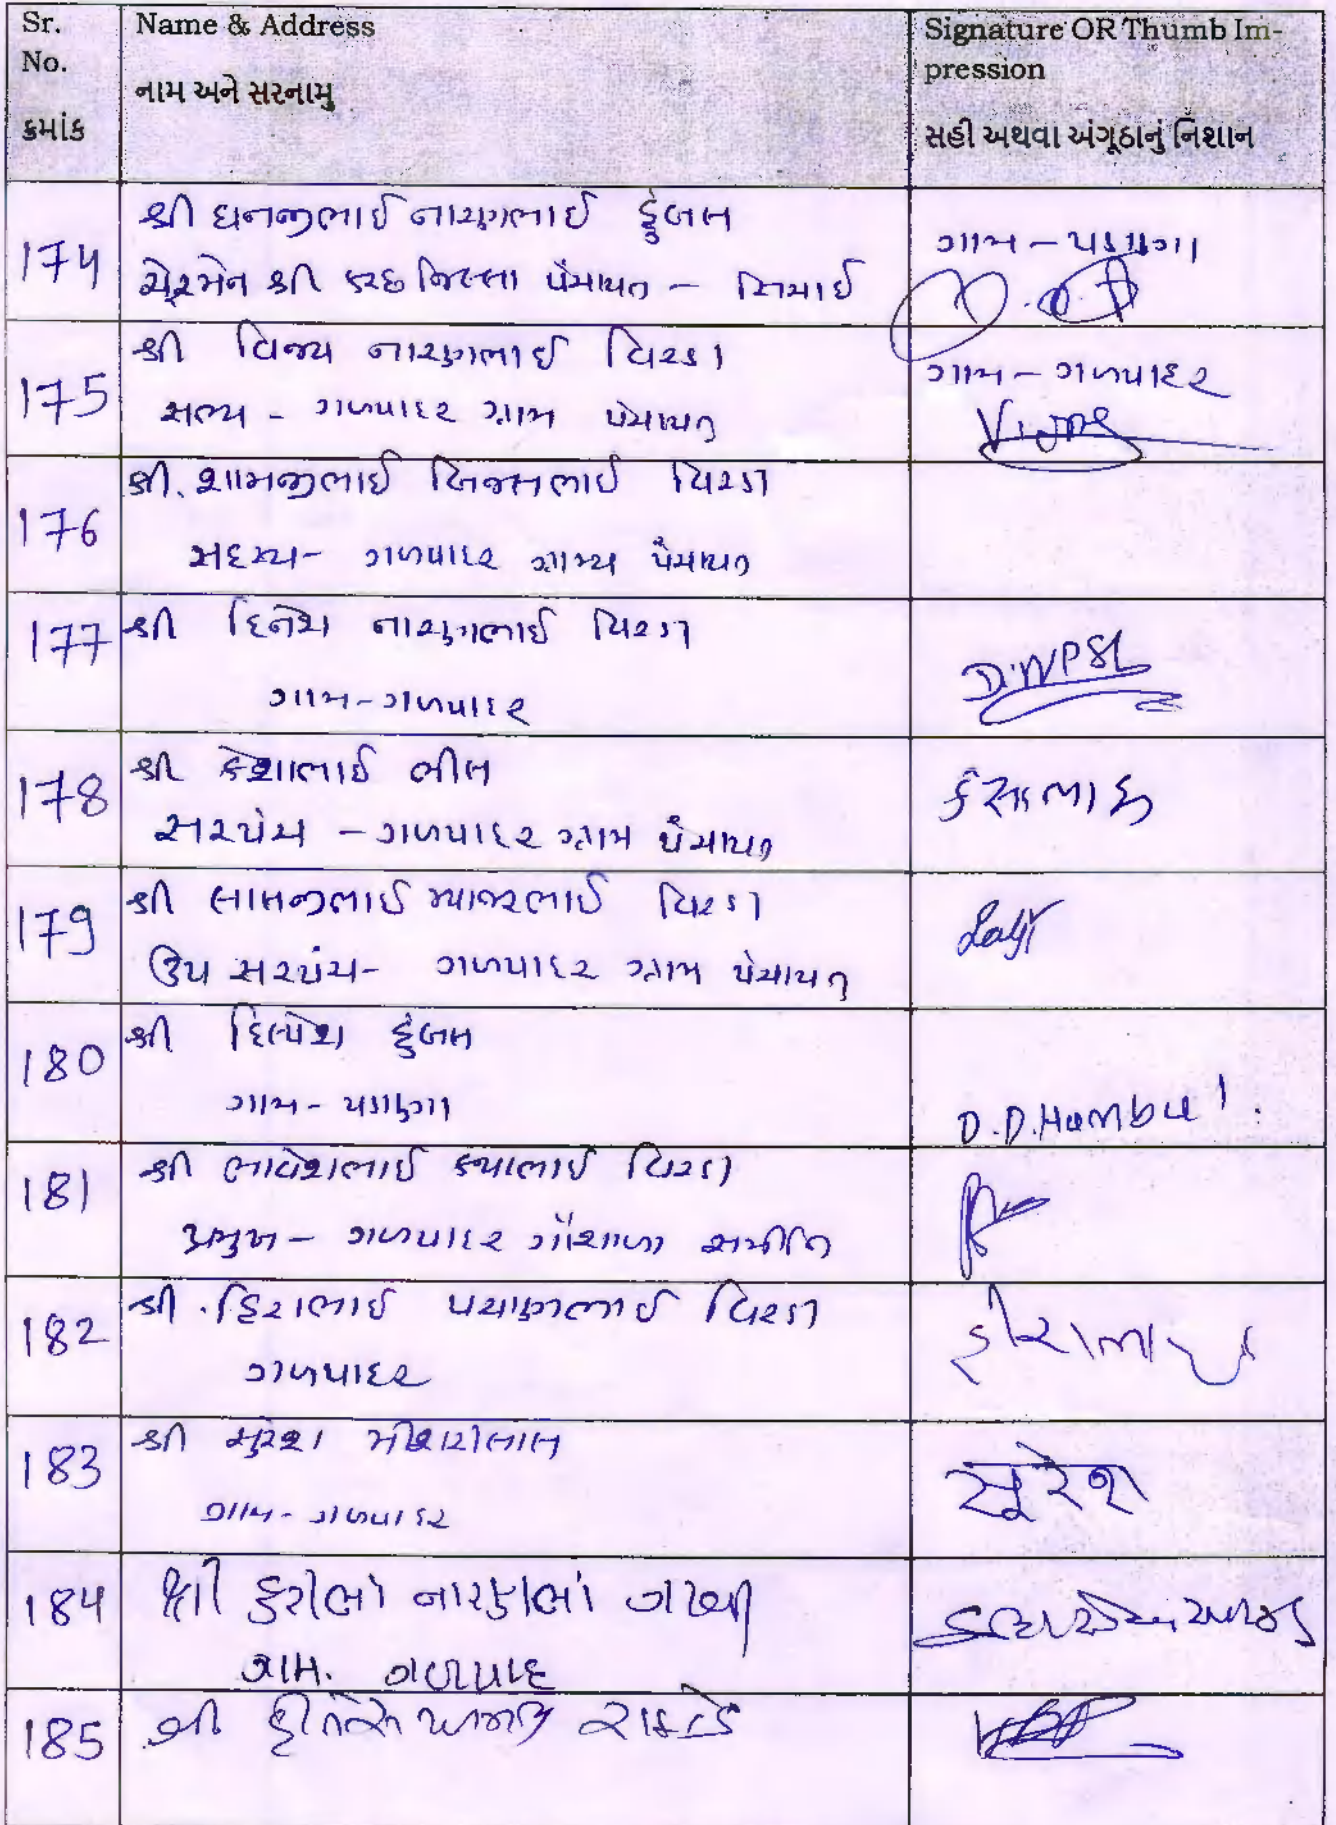 Sr.
No.
ક્રમાંક
Name & Address
નામ અને સરનામુ
Signature OR Thumb Im-
pression
સહી અથવા અંગૂઠાનું નિશાન
174
શ્રી ધનજીભાઈ નારણભાઈ હુંબલ
ચેરમેન શ્રી કચ્છ જિલ્લા પંચાયત – સિંચાઈ
ગામ – પડાણા
175
શ્રી વિજય નારણભાઈ વિરડા
સભ્ય - ગળપાદર ગ્રામ પંચાયત
ગામ – ગળપાદર
176
શ્રી. શામજીભાઈ ભાઈ વિરડા
સદસ્ય - ગળપાદર ગ્રામ્ય પંચાયત
177
શ્રી દિનેશ નારણભાઈ વિરડા
ગામ - ગળપાદર
178
શ્રી કેશાભાઈ ભીલ
સરપંચ – ગળપાદર ગ્રામ પંચાયત
179
શ્રી લાલજીભાઈ વિરડા
ઉપ સરપંચ - ગળપાદર ગ્રામ પંચાયત
180
શ્રી હુંબલ
ગામ - પડાણા
D.D.Humbal.
181
શ્રી ભાવેશભાઈ વિરડા
પ્રમુખ – ગળપાદર ગૌશાળા સમીતિ
182
શ્રી. હિરાભાઈ પચાણભાઈ વિરડા
ગળપાદર
183
શ્રી સુરેશ
ગામ - ગળપાદર
सुरेश
184
શ્રી નારણભાં ગઢવી
ગામ. ગળપાદ
185
શ્રી